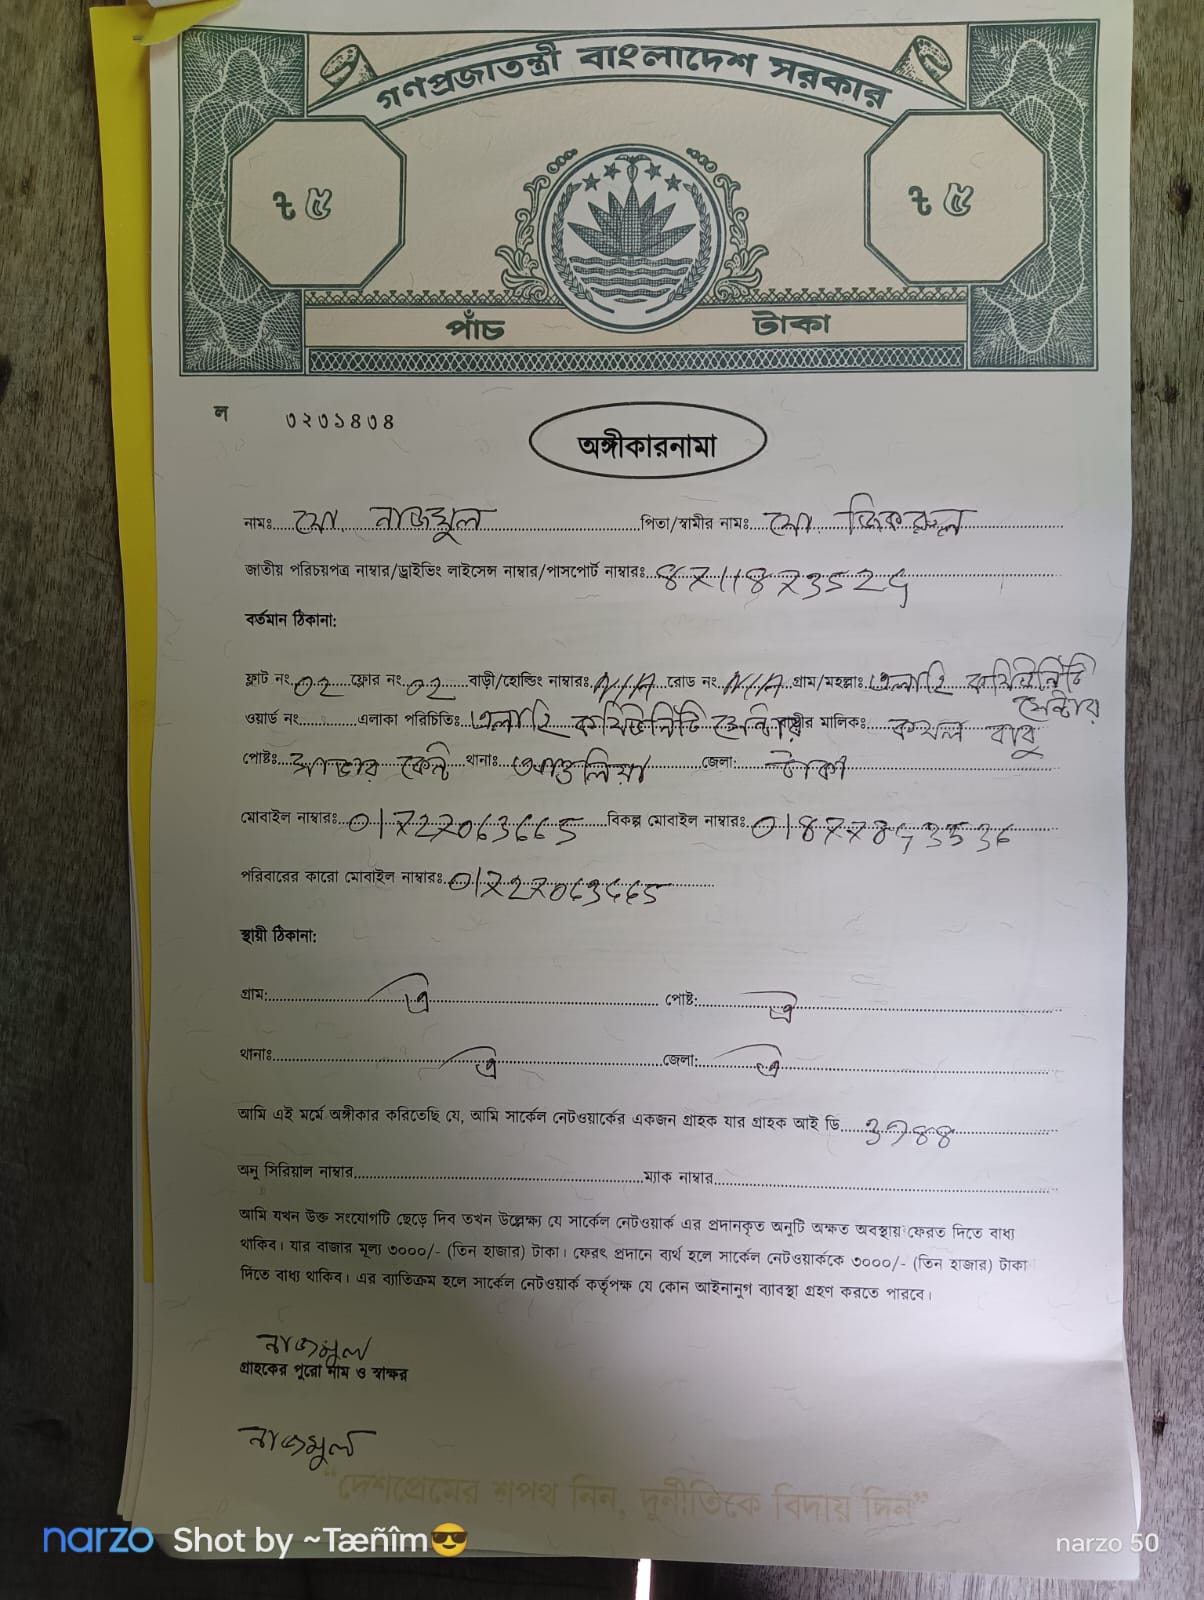 গণপ্রজাতন্ত্রী বাংলাদেশ সরকার
৳ ৫ ৳ ৫
পাঁচ টাকা
ল ৩২৩১৪৩৪
অঙ্গীকারনামা
নামঃ মো. নাজমুল পিতা/স্বামীর নামঃ মো. জিকরুল
জাতীয় পরিচয়পত্র নাম্বার/ড্রাইভিং লাইসেন্স নাম্বার/পাসপোর্ট নাম্বারঃ
বর্তমান ঠিকানা:
ফ্লাট নং 02 ফ্লোর নং 02 বাড়ী/হোল্ডিং নাম্বারঃ N/A রোড নং N/A গ্রাম/মহল্লাঃ এলাহি কমিউনিটি সেন্টার
ওয়ার্ড নং এলাকা পরিচিতিঃ এলাহি কমিউনিটি সেন্টার বাড়ীর মালিক: কমল বাবু
পোষ্টঃ সাভার কেন্ট থানাঃ আশুলিয়া জেলা: ঢাকা
মোবাইল নাম্বারঃ 01727063665 বিকল্প মোবাইল নাম্বারঃ
পরিবারের কারো মোবাইল নাম্বারঃ 01727063665
স্থায়ী ঠিকানা:
গ্রাম: ঐ পোষ্ট: ঐ
থানাঃ ঐ জেলা: ঐ
আমি এই মর্মে অঙ্গীকার করিতেছি যে, আমি সার্কেল নেটওয়ার্কের একজন গ্রাহক যার গ্রাহক আই ডি
অনু সিরিয়াল নাম্বার ম্যাক নাম্বার
আমি যখন উক্ত সংযোগটি ছেড়ে দিব তখন উল্লেক্ষ্য যে সার্কেল নেটওয়ার্ক এর প্রদানকৃত অনুটি অক্ষত অবস্থায় ফেরত দিতে বাধ্য
থাকিব। যার বাজার মূল্য ৩০০০/- (তিন হাজার) টাকা। ফেরৎ প্রদানে ব্যর্থ হলে সার্কেল নেটওয়ার্ককে ৩০০০/- (তিন হাজার) টাকা
দিতে বাধ্য থাকিব। এর ব্যাতিক্রম হলে সার্কেল নেটওয়ার্ক কর্তৃপক্ষ যে কোন আইনানুগ ব্যাবস্থা গ্রহণ করতে পারবে।
নাজমুল
গ্রাহকের পুরো নাম ও স্বাক্ষর
নাজমুল
“দেশপ্রেমের শপথ নিন, দুর্নীতিকে বিদায় দিন”
narzo Shot by ~Tæñîm😎 narzo 50